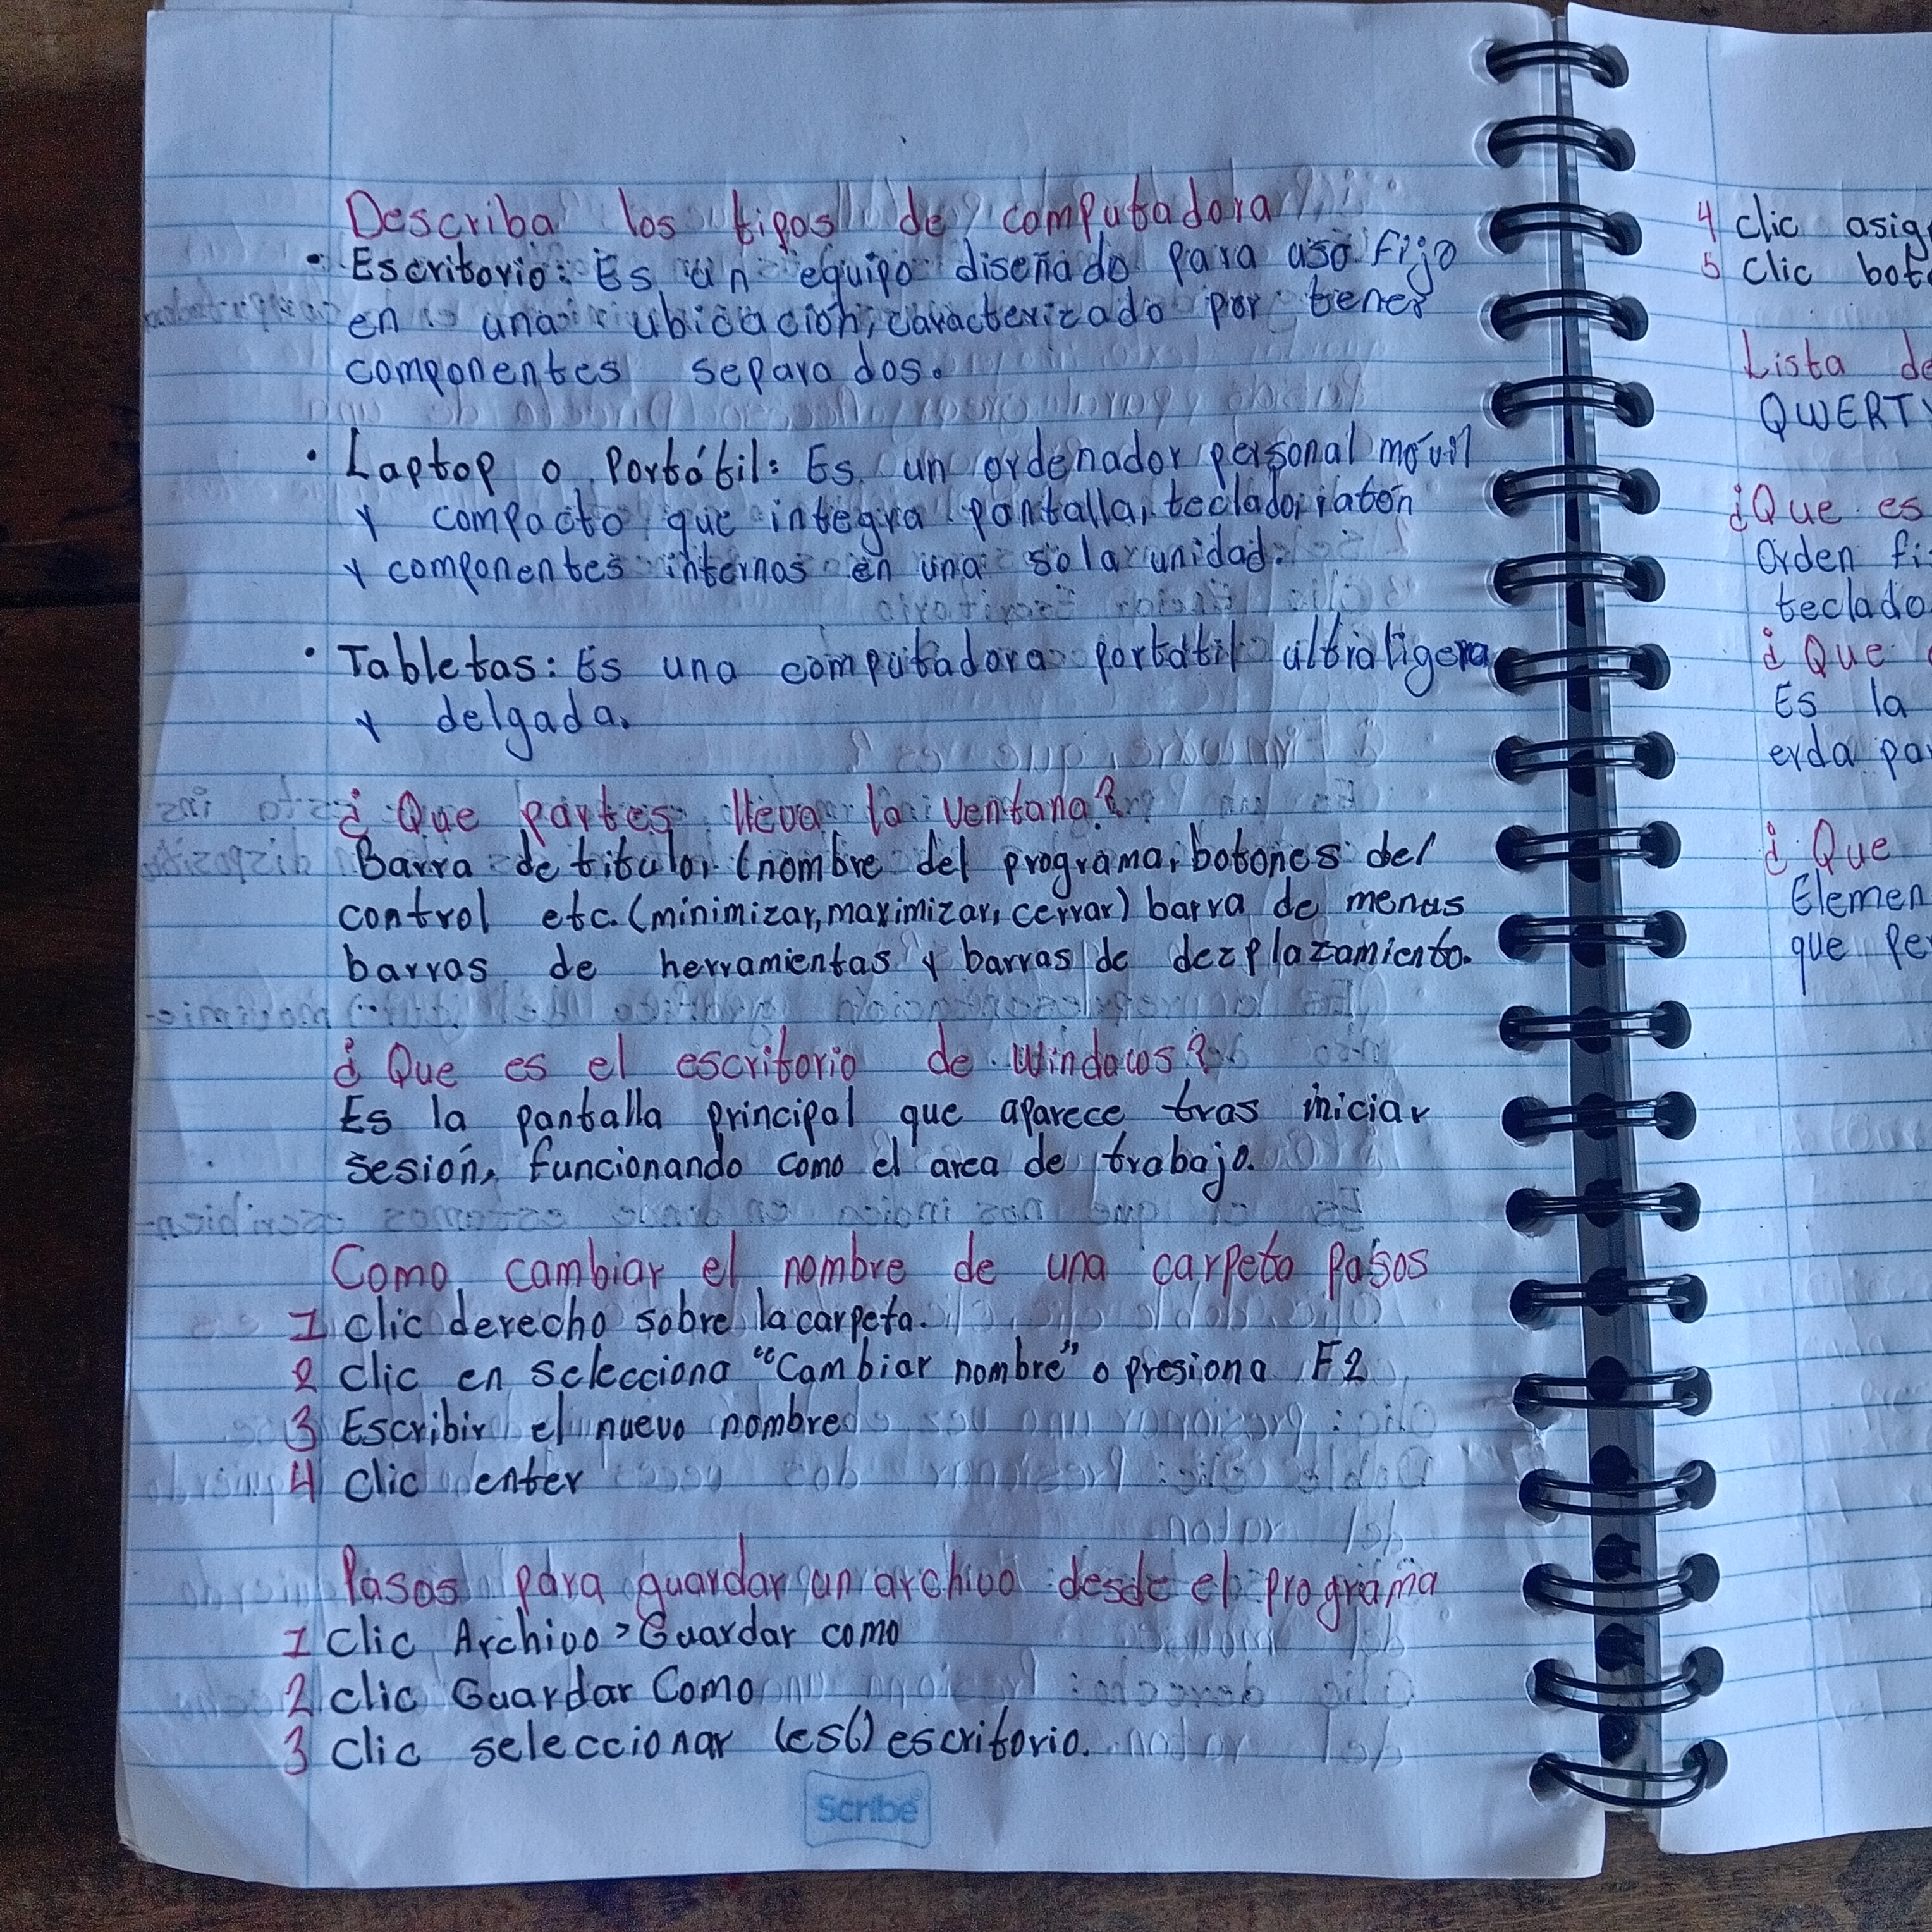 Describa los tipos de computadora
• Escritorio: Es un equipo diseñado para uso fijo
en una ubicación, caracterizado por tener
componentes separados.
• Laptop o Portátil: Es un ordenador personal móvil
y compacto que integra pantalla, teclado, ratón
y componentes internos en una sola unidad.
• Tabletas: Es una computadora portatil ultraligera
y delgada.
¿Que partes lleva la ventana?
Barra de titulo, (nombre del programa, botones del
control etc. (minimizar, maximizar, cerrar) barra de menus
barras de herramientas y barras de dezplazamiento.
¿Que es el escritorio de windows?
Es la pantalla principal que aparece tras iniciar
sesión, funcionando como el area de trabajo.
Como cambiar el nombre de una carpeta Pasos
1 clic derecho sobre la carpeta.
2 clic en selecciona "Cambiar nombre" o presiona F2
3 Escribir el nuevo nombre
4 clic enter
Pasos para guardar un archivo desde el programa
1 Clic Archivo > Guardar como
2 clic Guardar Como
3 clic seleccionar (es() escritorio.
Scribe
4 clic
5 clic
Lista de
QWERTY
¿Que es
Orden
teclado
¿Que
Es la
erda
¿Que
que